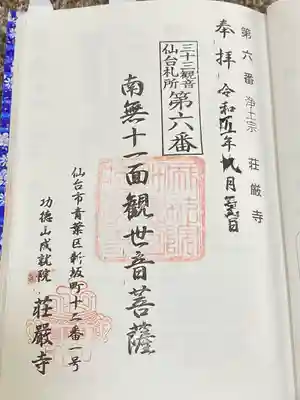 第六番 浄土宗 荘厳寺
奉拝 令和伍年九月
三十三観音
仙台札所
第六番
南無十一面観世音菩薩
仙台市青葉区新坂町十二番一号
功徳山成就院 荘厳寺